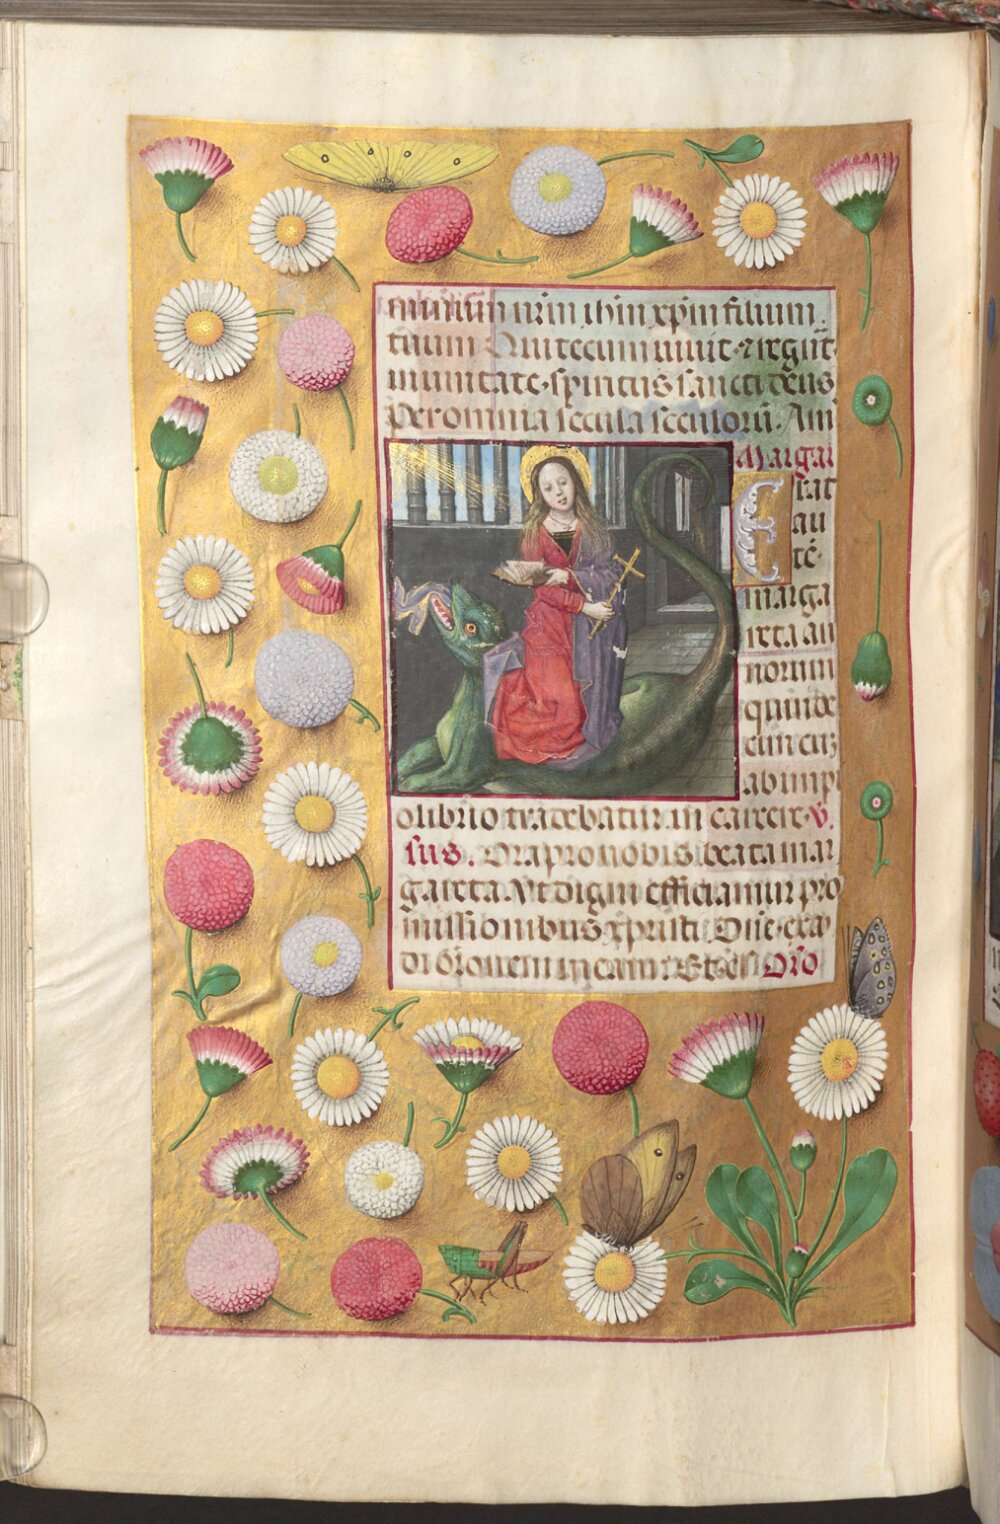 nostrum ihm xpm filium
tuum Qui tecum uiuit ⁊ regnat
in unitate spiritus sancti deus
Per omnia secula seculorū. Am
Margar
Erat
au
tē
marga
reta an
norum
quinde
cim cū
ab impi
olibrio tradebatur in carcere. V
sus. Ora pro nobis beata mar
gareta. Vt digni efficiamur pro
missionibus xpristi Dn̄e exa
di orōnem meam Et Oro